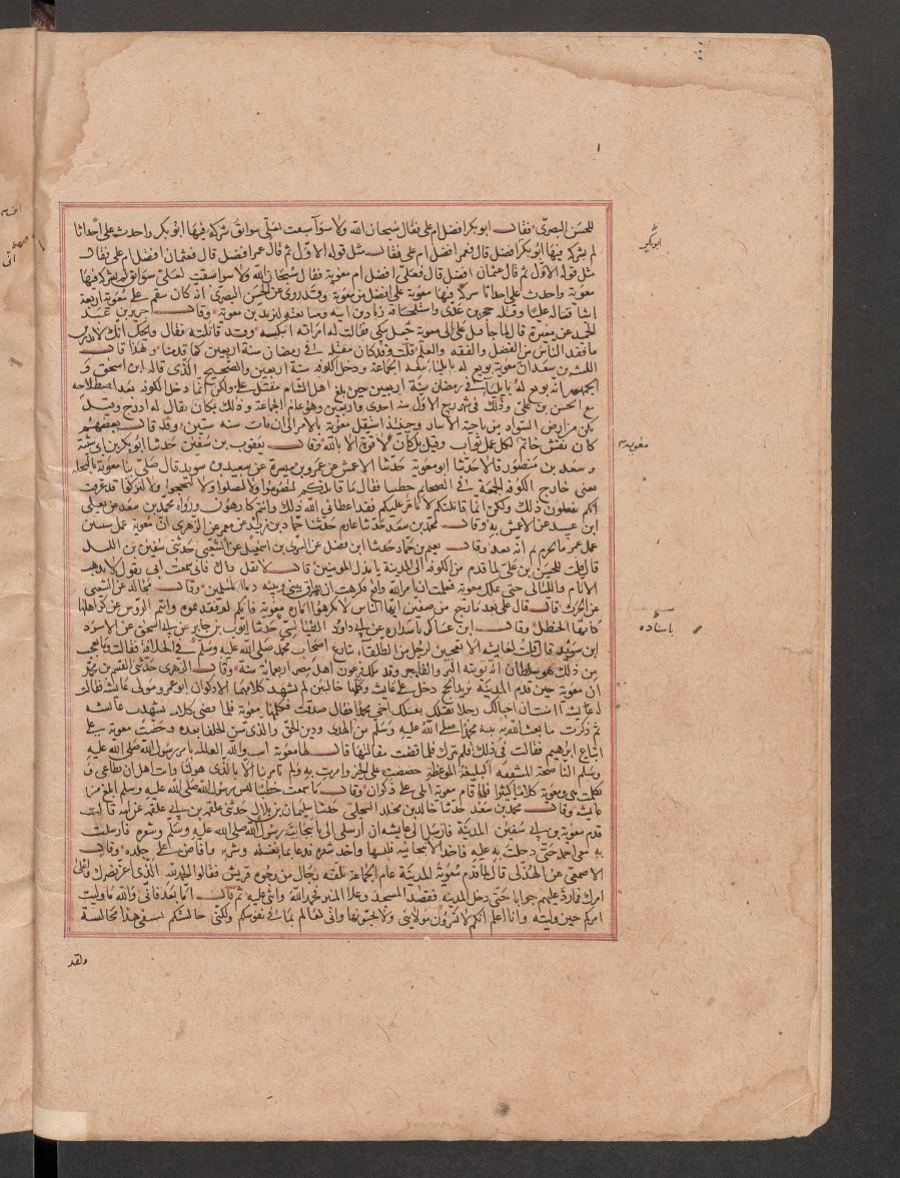 للحسن البصرى فقال ابوبكر افضل ام على فقال سبحان الله ولا سوآ سبقت لعلى سوابق شركه فيها ابوبكر واحدث على احداثا
لم يشركه فيها ابوبكر افضل قال فعمر افضل ام على فقال مثل قوله الاول ثم قال عمر افضل قال فعثمان افضل ام على فقال
مثل قوله الاول ثم قال عثمان افضل قال فعلى افضل ام معوية فقال سبحان الله ولا سوا سبقت لعلى سوابق لم يشركه فيها
معوية واحدث على احداثا شركه فيها معوية على افضل من معوية وقد روى عن الحسن البصرى انه كان ينقم على معوية اربعة
اشيا قتاله عليا وقتله حجر بن عدى واستلحاقه زياد بن ابيه ومبايعته ليزيد ابنه وقال جرير بن عبد
الحميد عن مغيرة قال لما جا قتل على الى معوية جعل يبكى فقالت له امراته اتبكيه وقد قاتلته فقال ويحك انك لا تدرين
ما فقد الناس من الفضل والفقه والعلم قلت وقد كان مقتله فى رمضان سنة اربعين كما قدمنا ولهذا قال
الليث بن سعد ان معوية بويع له بايليا بيعة الجماعة ودخل الكوفه سنة اربعين والصحيح الذى قاله ابن اسحق و
الجمهور انه بويع له بايليا فى رمضان سنة اربعين حين بلغ اهل الشام مقتل على ولكن انما دخل الكوفه بعد اصطلاحه
مع الحسن بن على وذلك فى شهر ربيع الاول سنه احدى واربعين وهو عام الجماعة وذلك بمكان يقال له ادرج وقيل
بمسكن من ارض السواد من ناحية الانبار وحينئذ استقل معوية بالامر الى ان مات سنه ستين وقد قال بعضهم
كان نقش خاتمه لكل عمل ثواب وقيل بل كان لا قوة الا بالله وقال يعقوب بن سفين حدثنا ابوبكر بن ابى شيبة
وسعيد بن منصور قالا حدثنا ابو معوية حدثنا الاعمش عن عمرو بن ميسرة عن سعيد بن سويد قال صلى بنا معوية بالنخيلة
يعنى خارج الكوفه الجمعة فى الضحا ثم خطبنا فقال ما قاتلتكم لتصوموا ولا لتصلوا ولا لتحجوا ولا لتزكوا قد عرفت
انكم تفعلون ذلك ولكن انما قاتلتكم لاتامر عليكم فقد اعطانى الله ذلك وانتم كارهون ورواه محمد بن سعد عن يعلى
ابن عبيد عن الاعمش به وقال محمد بن سعد حدثنا عارم حدثنا حماد بن زيد عن معمر عن الزهرى ان معوية عمل سنتين
عمل عمر ما يخرم ثم انه بعد وقال نعيم بن حماد حدثنا ابن فضيل عن السرى بن اسمعيل عن الشعبى حدثنى سفين بن الليل
قال قلت للحسن بن على لما قدم من الكوفه الى المدينة يا مذل المومنين قال لا تقل ذاك فانى سمعت ابى يقول لا يذهب
الايام والليالى حتى يملك معوية فعلمت ان امر الله واقع فكرهت ان يهراق بينى وبينه دماء المسلمين وقال مجالد عن الشعبى
عن الحرث قال قال على بعد ما رجع من صفين ايها الناس لا تكرهوا امارة معوية فانكم لو فقدتموه رايتم الروس عن كواهلها
كانها الحنظل وقال ابن عساكر باسناده عن ابى داود الطيالسى حدثنا ايوب بن جابر عن ابى اسحق عن الاسود
ابن يزيد قال قلت لعايشه الا تعجبين لرجل من الطلقاء ينازع اصحاب محمد صلى الله عليه وسلم فى الخلافة فقالت وما تعجب
من ذلك هو سلطان الله يوتيه البر والفاجر وقد ملك فرعون اهل مصر اربعمائة سنة وقال الزهرى حدثنى القسم بن محمد
ان معوية حين قدم المدينة يريد الحج دخل على عايشة وكلمها خاليين لم يشهد كلامهما الا ذكوان ابو عمر ومولى عايشة فقالت
له عايشه امنت ان اخبا لك رجلا يقتلك بقتلك اخى محمدا فقال صدقت فكلمها معوية فلما قضى كلامه تشهدت عايشه
ثم ذكرت ما بعث الله به نبيه محمدا صلى الله عليه وسلم من الهدى ودين الحق والذى سن الخلفا بعده وحضت معوية على
اتباع امرهم فقالت فى ذلك فلم تترك فلما قضت مقالتها قال لها معوية انت والله العالمة بامر رسول الله صلى الله عليه
وسلم الناصحة المشفقه البليغة الموعظة حضضت على الخير وامرت به ولم تامرينا الا بالذى هو لنا وانت اهل ان تطاعى و
تكلمت هى ومعوية كلاما كثيرا فلما قام معوية اتكى على ذكوان وقال ما سمعت خطيبا ليس رسول الله صلى الله عليه وسلم ابلغ من
عايشة وقال محمد بن سعد حدثنا خالد بن مخلد البجلى حدثنا سليمان بن بلال حدثنى علقمه بن ابى علقمه عن امه قالت
قدم معوية بن ابى سفين المدينة فارسل الى عايشه ان ارسلى الى بانبجانية رسول الله صلى الله عليه وسلم وشعره فارسلت
به معى احمله حتى دخلت به عليه فاخذ الانبجانيه فلبسها واخذ شعره فدعا بما فغسله وشربه وافاض على جلده وقال
الاصمعى عن الهذلى قال لما قدم معوية المدينة عام الجماعة تلقته رجال من وجوه قريش فقالوا الحمد لله الذى اعز نصرك واعلى
امرك فما رد عليهم جوابا حتى دخل المدينه فقصد المسجد وعلا المنبر فحمد الله واثنى عليه ثم قال اما بعد فانى والله ما وليت
امركم حين وليته وانا اعلم انكم لا تسرون بولايتى ولا تحبونها وانى لعالم بما فى نفوسكم ولكنى خالستكم بسيفى هذا مخالسة
ولقد
ابوبكر
معوية
باسناده